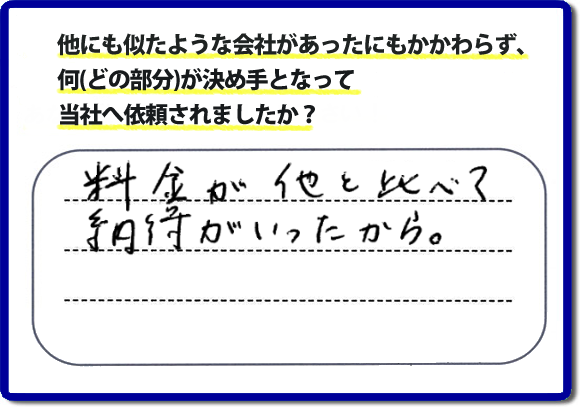 他にも似たような会社があったにもかかわらず、
何(どの部分)が決め手となって
当社へ依頼されましたか？
料金が他と比べて
納得がいったから。